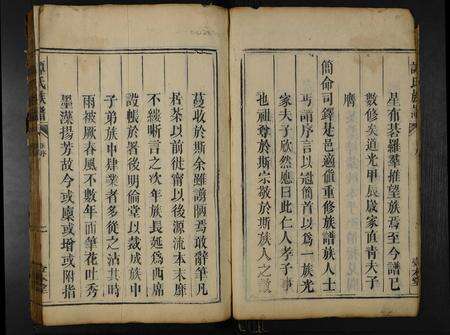 氏族
星布碁羅羣推望族焉至今譜已
數修矣道光甲辰歲家直青夫子
膺
簡命司鐸是邑適值重修族譜族人士
丐序言以冠簡首以為一族光
家夫子欣然應曰此仁人孝子事
也祖尊於斯宗敬於斯族人之賢
蔓收於斯余雖謭陋焉敢辭筆凡
若茶以前徙甯以後源流本末靡
不縷晰言之次年族長延為西席
設帳於署後明倫堂以裁成族中
子弟族中肄業者多從之沾其時
雨被厥春風不數年而筆花吐秀
墨藻揚芳故今或廪或增或附指
氏族譜
本堂